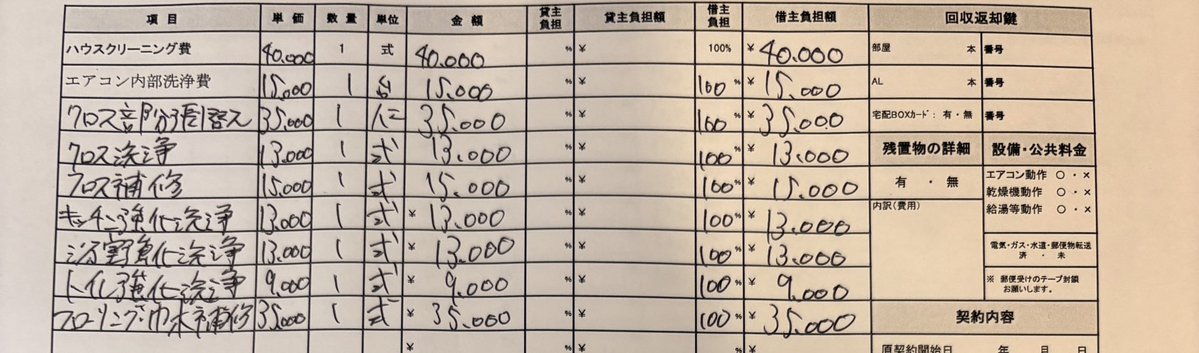 項 目 単 価 数 量 単位 金 額 貸主負担 貸主負担額 借主負担 借主負担額 回収返却鍵
ハウスクリーニング費 40.000 1 式 40.000 % ¥ 100% ¥ 40.000 部屋 本 番号
エアコン内部洗浄費 15.000 1 台 15.000 % ¥ 100 % ¥ 15.000 AL 本 番号
クロス部分張替え 35.000 1 人工 35.000 % ¥ 100 % ¥ 35.000 宅配BOXカード: 有・無 番号
クロス洗浄 13.000 1 式 13.000 % ¥ 100 % ¥ 13.000 残置物の詳細 設備・公共料金
クロス補修 15.000 1 式 15.000 % ¥ 100 % ¥ 15.000 有 ・ 無 エアコン動作 ○・×
乾燥機動作 ○・×
キッチン強化洗浄 13.000 1 式 ¥ 13.000 % ¥ 100 % ¥ 13.000 内訳(費用) 給湯等動作 ○・×
強化洗浄 13.000 1 式 ¥ 13.000 % ¥ 100 % ¥ 13.000 電気・ガス・水道・郵便物転送
済 ・ 未
トイレ強化洗浄 9.000 1 式 ¥ 9.000 % ¥ 100 % ¥ 9.000 ※ 郵便受けのテープ封鎖
お願いします。
フローリング巾木補修 35.000 1 式 ¥ 35.000 % ¥ 100 % ¥ 35.000 契約内容
¥ % ¥ % ¥ 原契約開始日 年 月 日